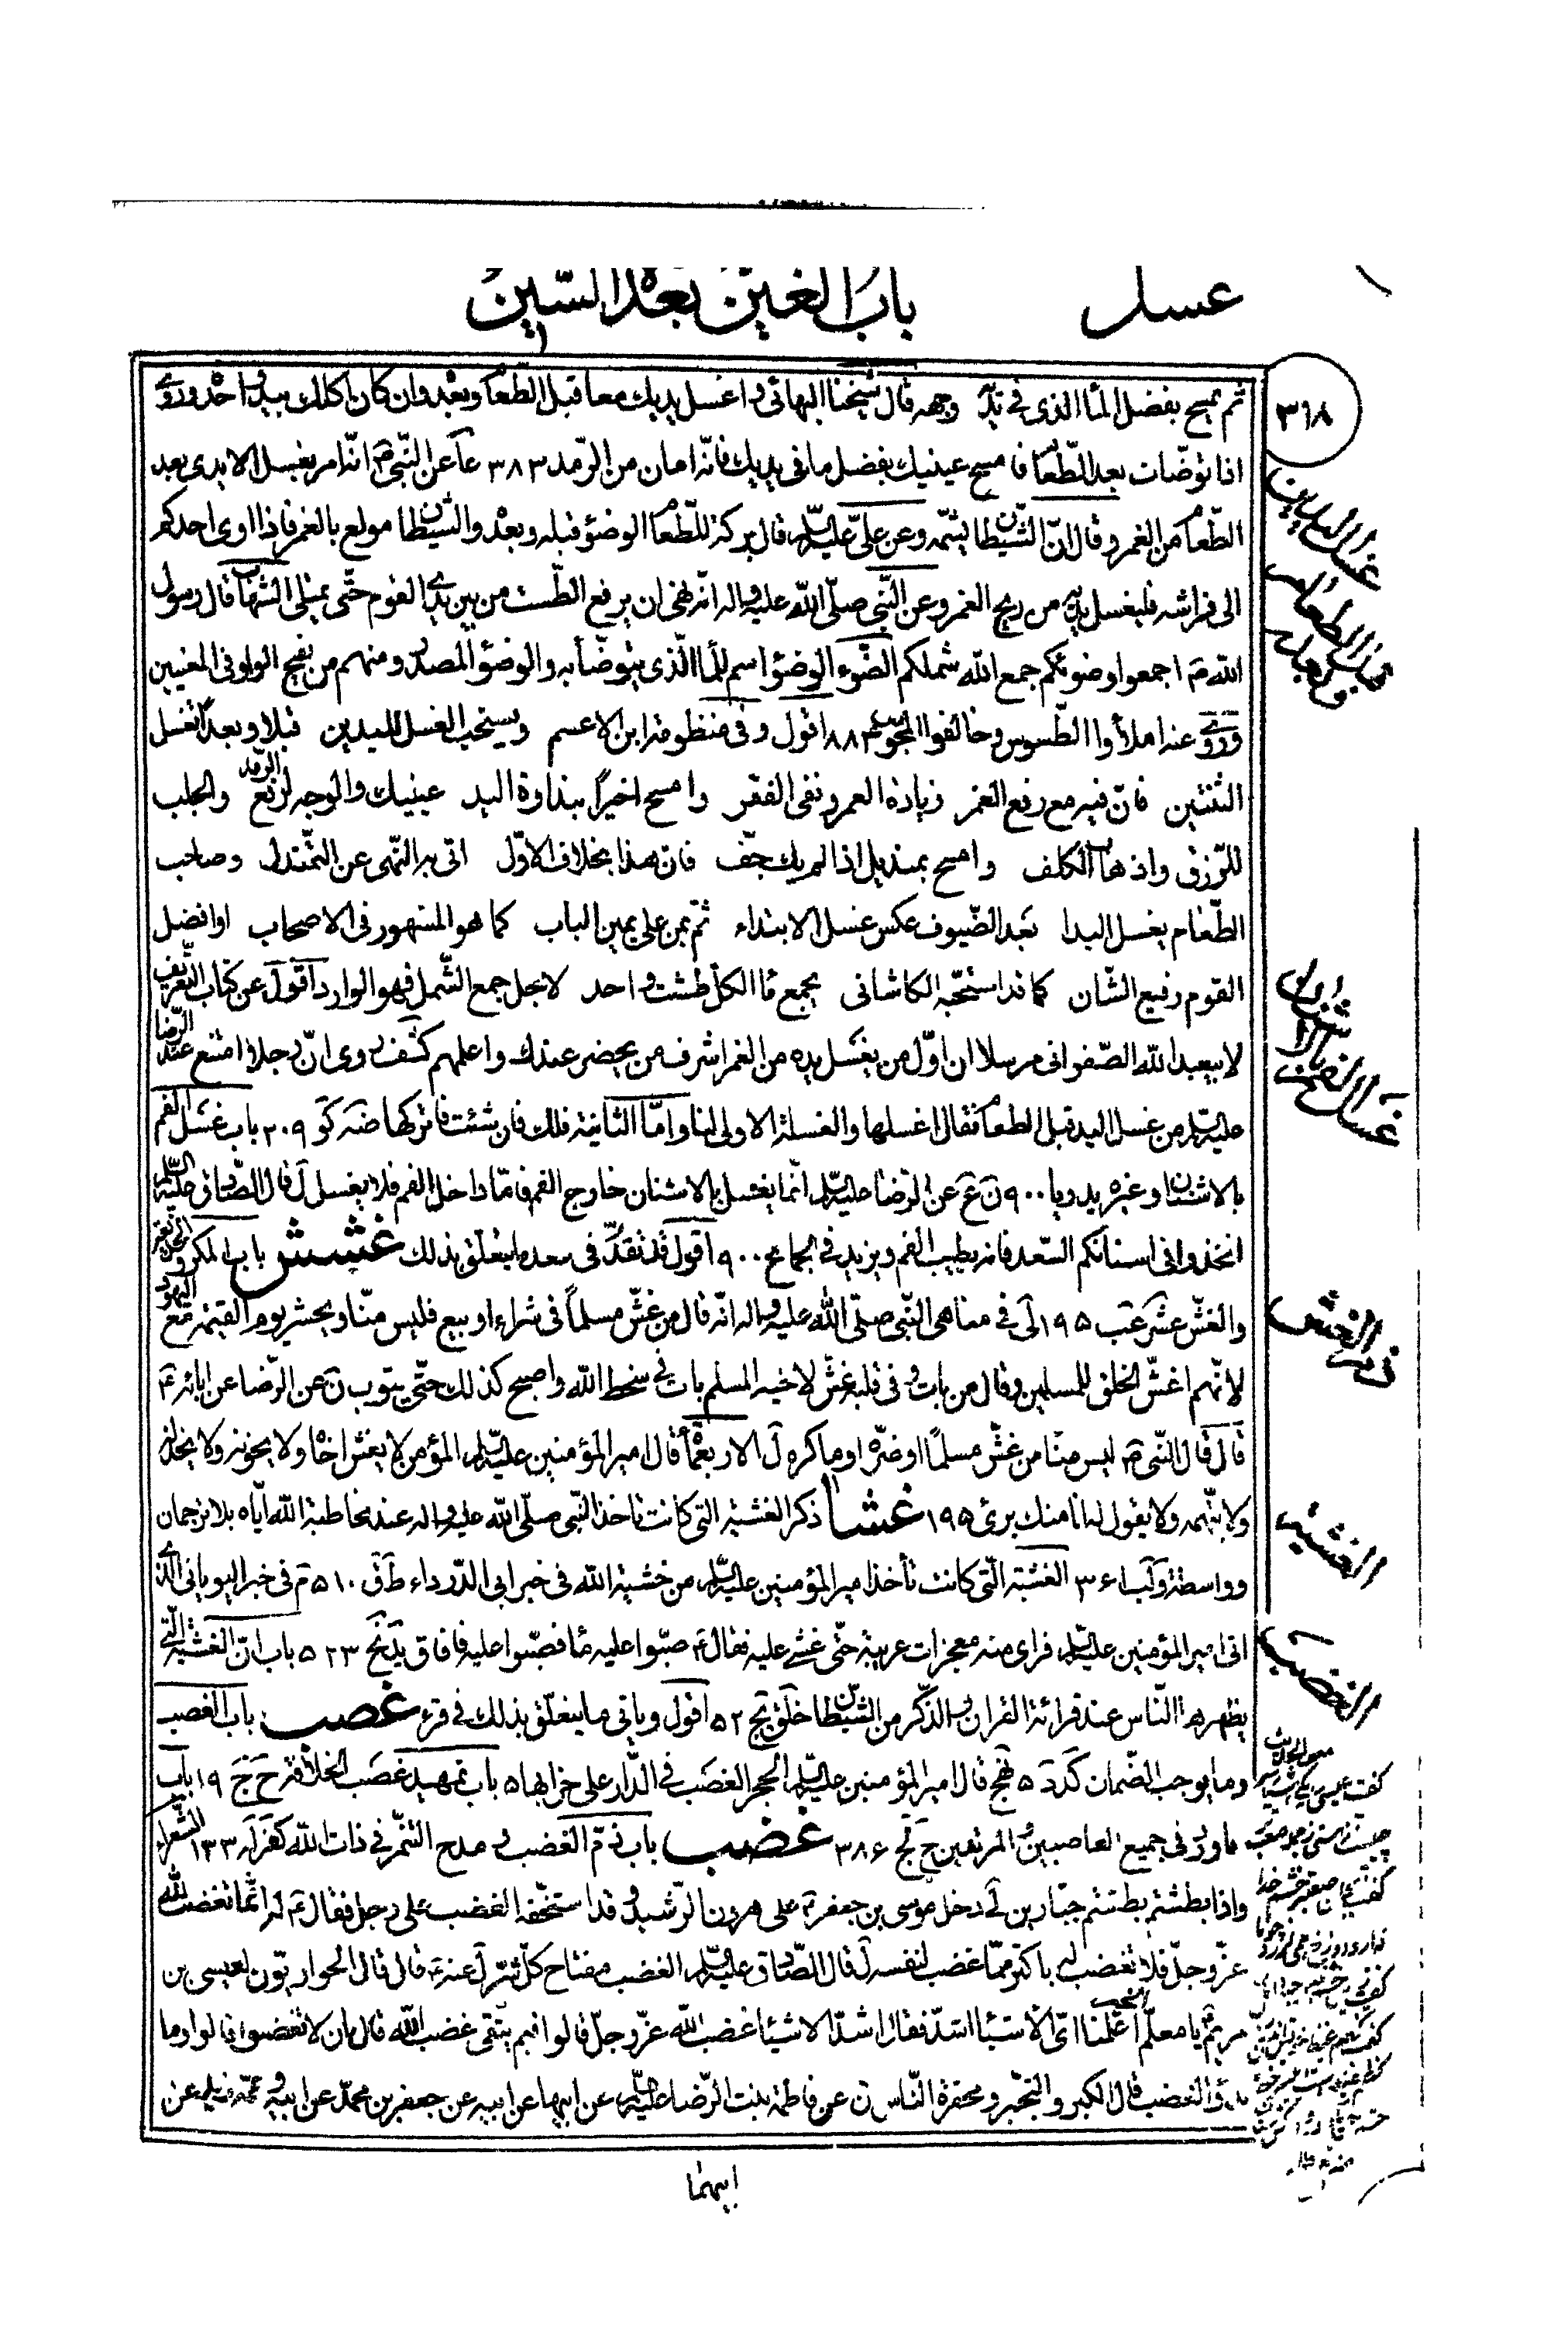 غسل
باب الغين بعد السين
٣١٨
ثم يمسح بفضل الماء الذى فى يده وجهه قال شيخنا البهائى ره اغسل يديك معا قبل الطعام وبعده وان كان اكلك بيد واحدة وروى
اذا توضأت بعد الطعام فامسح عينيك بفضل ما فى يديك فانه امان من الرمد ٣٨٣ عا عن النبى ص انه امر بغسل الايدى بعد
الطعام من الغمر وقال ان الشيطان يشمه وعن على عليه السلم قال بركة للطعام الوضوء قبله وبعده والشيطان مولع بالغمر فاذا اوى احدكم
الى فراشه فليغسل يديه من ريح الغمر وعن النبى صلى الله عليه واله انه نهى ان يرفع الطست من بين يدى القوم حتى يمتلى الشهاب قال رسول
الله ص اجمعوا وضوئكم جمع الله شملكم الضوء الوضوء اسم للماء الذى يتوضأ به والوضوء المصدر ومنهم من يفتح الواو فى المعنيين
وروى عنه املأوا الطسوس وخالفوا المجوس ٨٨٣ اقول وفى منظومة ابن الاعسم ويستحب الغسل لليدين قبلا وبعدا تغسل
الثنتين فان فيه مع رفع الغمر زيادة العمر ونفى الفقر وامسح اخيرا بنداوة اليد عينيك والوجه لرفع الرمد والجلب
للرزق واذهاب الكلف وامسح بمنديل اذا لم يك جف فان هذا بخلاف الاول اتى به النهى عن التمندل وصاحب
الطعام يغسل اليدا بعد الضيوف عكس غسل الابتداء ثم بمن على يمين الباب كما هو المشهور فى الاصحاب او افضل
القوم رفيع الشان كما قد استحبه الكاشانى يجمع ماء الكل طشت واحد لاجل جمع الشمل فهو الوارد اقول عن كتاب التعريف
لابيعبد الله الصفوانى مرسلا ان اول من يغسل يده من الغمر اشرف من يحضر عندك واعلمهم كشف روى ان رجلا امتنع عند الرضا
عليه السلم من غسل اليد قبل الطعام فقال اغسلها والغسلة الاولى لنا واما الثانية فلك فان شئت فاتركها ضه كو ٢٠٩ باب غسل الفم
بالاشنان وغيره يد ربا ٩٠٠ ن ع عن الرضا عليه السلم انما يغسل بالاشنان خارج الفم فاما داخل الفم فلا يغسل ل قال الصادق عليه السلم
اتخذوا فى اسنانكم السعد فانه يطيب الفم ويزيد فى الجماع ٩٠٠ اقول قد تقدم فى سعد ما يتعلق بذلك غشش باب المكر والخديعة
والغش عشر عب ١٩٥ لى فى مناهى النبى صلى الله عليه واله انه قال من غش مسلما فى شراء او بيع فليس منا ويحشر يوم القيمة مع اليهود
لانهم اغش الخلق للمسلمين وقال من بات وفى قلبه غش لاخيه المسلم بات فى سخط الله واصبح كذلك حتى يتوب ن عن الرضا عن ابائه ع
قال قال النبى ص ليس منا من غش مسلما او ضره او ماكره ل الاربعمأة قال امير المؤمنين عليه السلم المؤمن لا يغش اخاه ولا يخونه ولا يخذله
ولا يتهمه ولا يقول له انا منك برئ ١٩٥ غشا ذكر الغشية التى كانت تاخذ النبى صلى الله عليه واله عند مخاطبة الله اياه بلا ترجمان
وواسطة وكب ٣۶١ الغشية التى كانت تأخذ امير المؤمنين عليه السلم من خشية الله فى خبر ابى الدرداء ط ق ٥١٠ م فى خبر اليونانى الذى
اتى امير المؤمنين عليه السلم فراى منه معجزات غريبة حتى غشى عليه فقال ع صبوا عليه ماء فصبوا عليه فافاق يد نج ٥٢٣ باب ان الغشية التى
يظهرها الناس عند قرائة القران والذكر من الشيطان خلق نج ٥٢ اقول وياتى ما يتعلق بذلك فى قرء غصب باب الغصب
وما يوجب الضمان كد رد ٥ نهج قال امير المؤمنين عليه السلم الحجر الغصب فى الدار على خرابها ٥ باب تمهيد غصب الخلافة ح ج ١٩ باب
ما ورد فى جميع الغاصبين والمرتدين ح نج ٣٨۶ غضب باب ذم الغضب ومدح التنمر فى ذات الله كفر له ١٣٣ الشعراء
واذا بطشتم بطشتم جبارين لى دخل موسى بن جعفر ع على هرون الرشيد وقد استخفه الغضب على رجل فقال ع له انما تغضب لله
عز وجل فلا تغضب له باكثر مما غضب لنفسه ل قال الصادق عليه السلم الغضب مفتاح كل شر ل عنه ع قال قال الحواريون لعيسى بن
مريم ع يا معلم الخير اعلمنا اى الاشياء اشد فقال اشد الاشياء غضب الله عز وجل قالوا فبم يتقى غضب الله قال بان لا تغضبوا قالوا وما
بدؤ الغضب قال الكبر والتجبر ومحقرة الناس ن عن فاطمة بنت الرضا عليه السلم عن ابيها عن ابيه عن جعفر بن محمد عن ابيه وعمه زيد عن
ابيهما
غسل اليدين
قبل الطعام
وبعده
غسل الفم بالاشنان
ذم الغش
الغشية
الغضب